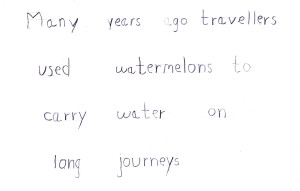 Many years ago travellers
used watermelons to
carry water on
long journeys